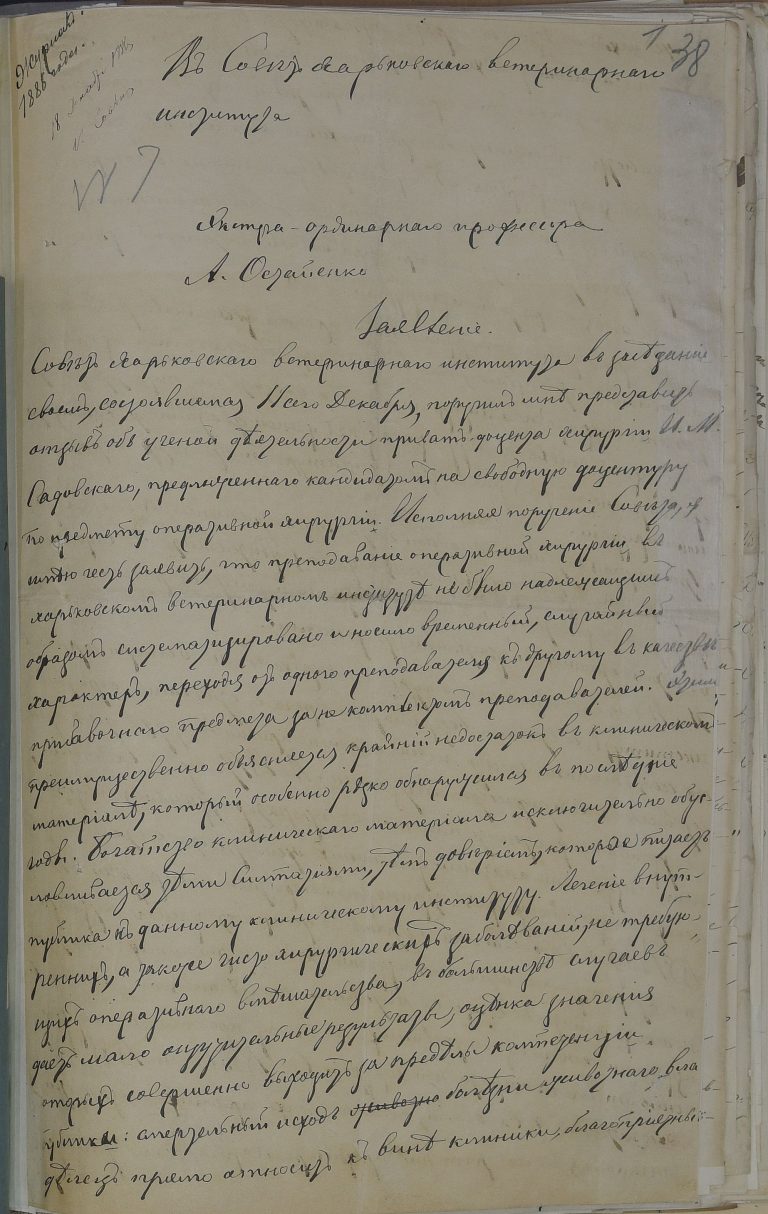 Журналъ
1886 года.
18 1886
1 38
Въ Совѣтъ Харьковскаго ветеринарнаго
института
№ 7
Экстра-ординарнаго профессора
А. Остапенко
Заявленіе.
Совѣтъ Харьковскаго ветеринарнаго института въ засѣданіи
своемъ, состоявшемся 11 сего Декабря, поручилъ мнѣ представить
отзывъ объ ученой дѣятельности приватъ-доцента хирургіи И. М.
Садовскаго, предложеннаго кандидатомъ на свободную доцентуру
по предмету оперативной хирургіи. Исполняя порученіе Совѣта, я
имѣю честь заявить, что преподаваніе оперативной хирургіи въ
харьковскомъ ветеринарномъ институтѣ не было надлежащимъ
образомъ систематизировано и носило временный, случайный
характеръ, переходя отъ одного преподавателя къ другому въ качествѣ
прибавочнаго предмета за не комплектомъ преподавателей. Этимъ
преимущественно объясняется крайній недостатокъ въ клиническомъ
матеріалѣ, который особенно рѣзко обнаружился въ послѣдніе
годы. Богатство клиническаго матеріала исключительно обус-
ловливается тѣми симпатіями, тѣмъ довѣріемъ, которое питаетъ
публика къ данному клиническому институту. Леченіе внут-
реннихъ, а также число хирургическихъ заболѣваній, не требую-
щихъ оперативнаго вмѣшательства, въ большинствѣ случаевъ
даетъ мало ощутительные результаты, оцѣнка значенія
которыхъ совершенно выходитъ за предѣлы компетенціи
публики: смертельный исходъ животно болѣзни животнаго вла
дѣлецъ прямо относитъ къ винѣ клиники, благопріятный-